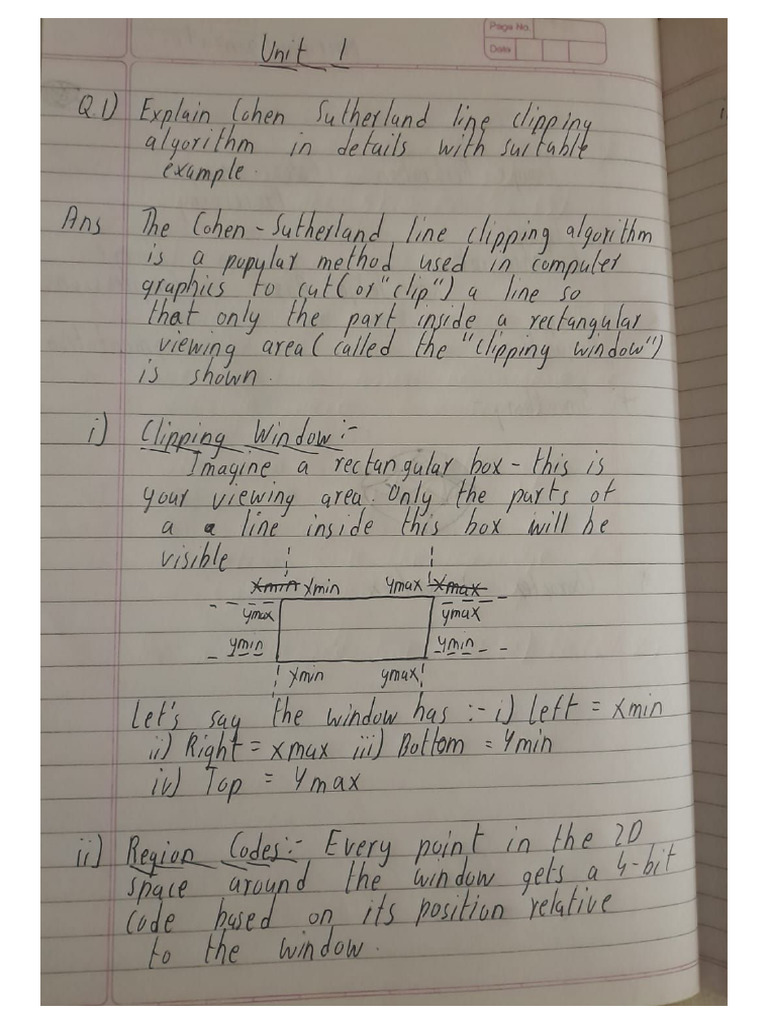 Page No.
Date
Unit 1
Q.1) Explain Cohen Sutherland line clipping
algorithm in details with suitable
example.
Ans The Cohen-Sutherland line clipping algorithm
is a popular method used in computer
graphics to cut (or "clip") a line so
that only the part inside a rectangular
viewing area (called the "clipping window")
is shown.
i) Clipping Window:-
Imagine a rectangular box - this is
your viewing area. Only the parts of
a a line inside this box will be
visible
xmin xmin ymax xmax
ymax ymax
ymin ymin
xmin ymax
Let's say the window has :- i) left = xmin
ii) Right = xmax iii) Bottom = Ymin
iv) Top = Ymax
ii) Region Codes:- Every point in the 2D
space around the window gets a 4-bit
code based on its position relative
to the window.